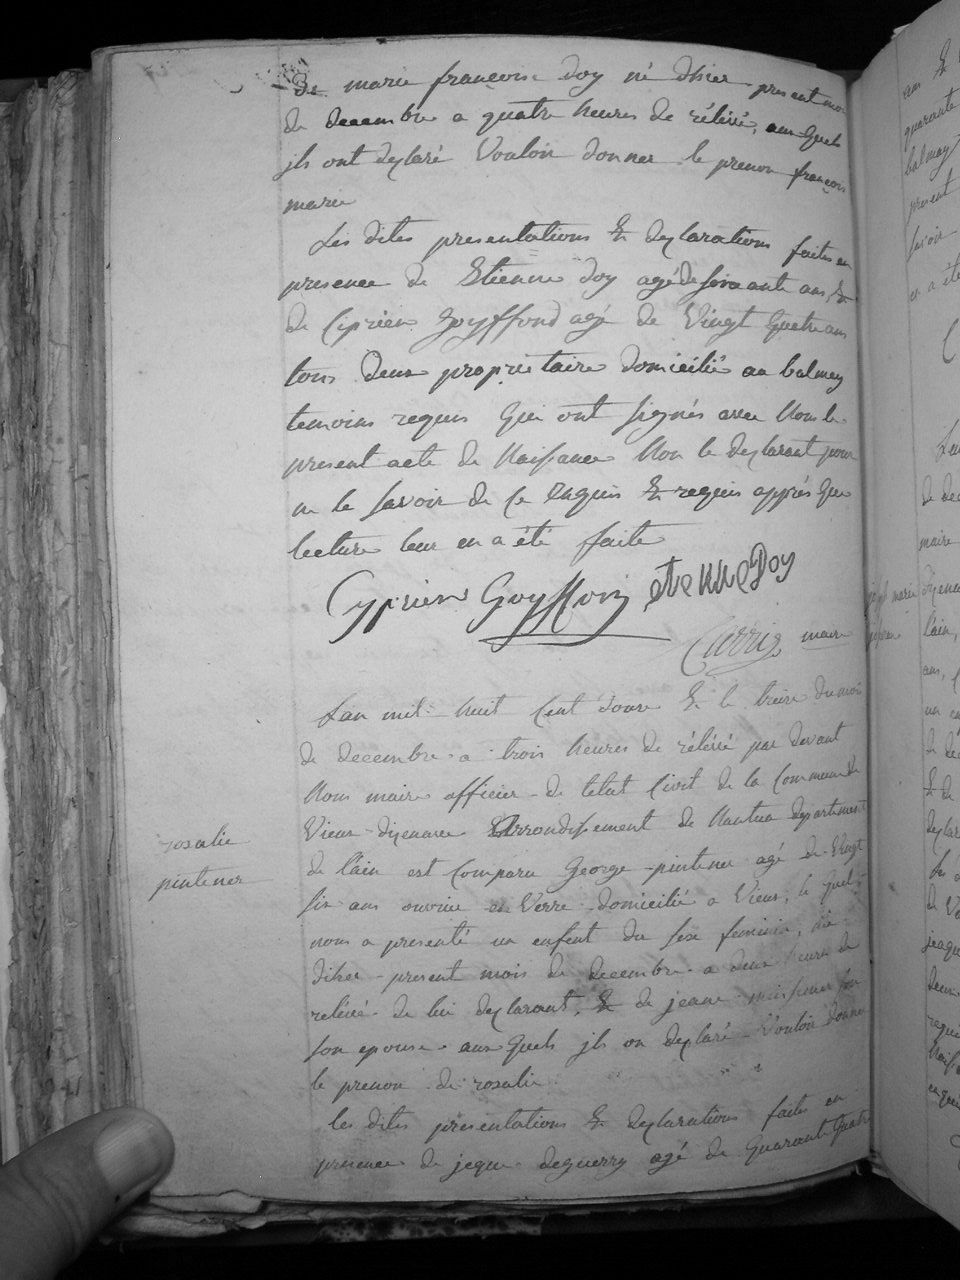 de marie françoise Doy né dhier present moi
de decembre a quatre heures de rélévé, aux quels
jls ont declaré Vouloir donner le prenon françois
marie
Les dites presentations & declarations faites en
presence de Etienne Doy agé de soixante ans, &
de Ciprien Goyffond agé de Vingt quatre ans
tous deux proprietaire domicilié au balmey
temoins requis qui ont signés avec Nous le
present acte de Naissance Non le declarant pour
ne le savoir de ce enquis & requis apprés que
lecture leur en a été faite
Cyprien Goyffon etienne Doy
maire
Lan mil huit Cent douze & le treize du moi
de decembre a trois heures de rélévé par devant
Nous maire officier de letat Civil de la Commune de
Vieux dizenave Arrondissement de Nantua departement
de lain est Comparu George pintener agé de Vingt
six ans ouvrier en Verre domicilié a Vieux, le quel
nous a presenté un enfant du sexe feminin, né
diher present mois de decembre a deux heures de
relévé de lui declarant, & de jeanne
son epouse aux quels jls on declaré Vouloir donner
le prenon de rosalie
les dites presentations & declarations faites en
presence de jeque deguerry agé de quarante quatre
rosalie
pintener